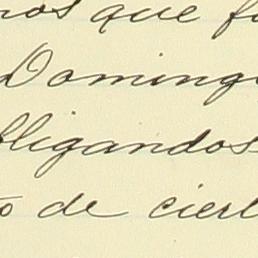 nos que fu
Doming
bligandos
to de ciert